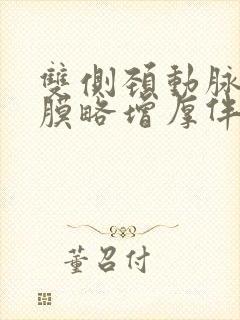 雙側頚動脉
膜略增厚伴
董召付